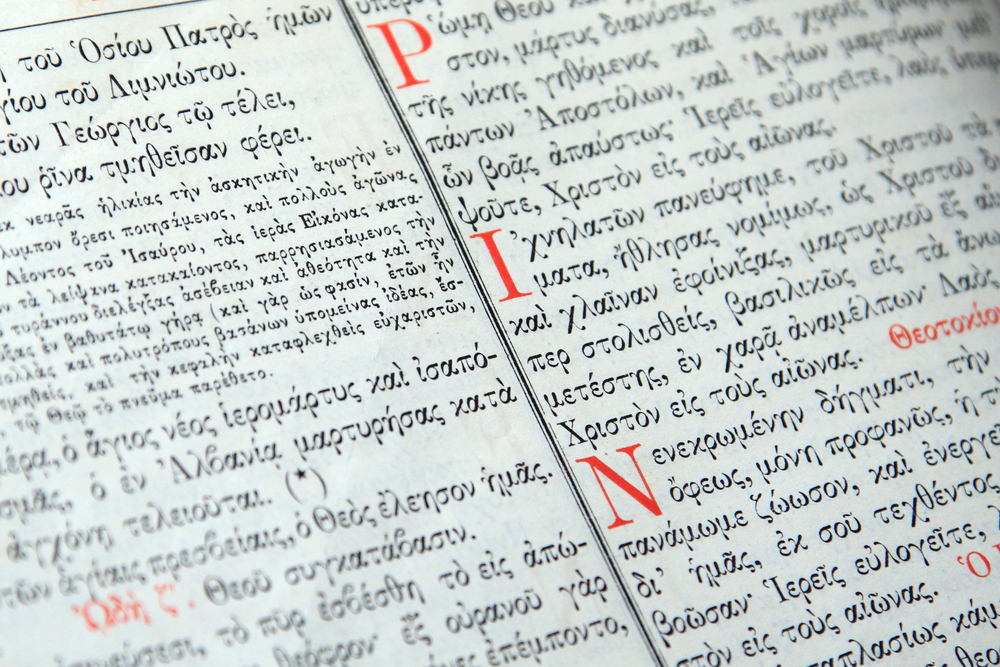 τοῦ Ὁσίου Πατρὸς ἡμῶν
γίου τοῦ Λιμνιώτου.
τῶν Γεώργιος τῷ τέλει,
ου ῥῖνα τμηθεῖσαν φέρει..
ἐκ νεαρᾶς ἡλικίας τὴν ἀσκητικὴν ἀγωγὴν ἐν
λυμπον ὄρεσι ποιησάμενος, καὶ πολλοὺς ἀγῶνας
Λέοντος τοῦ Ἰσαύρου, τὰς ἱερὰς Εἰκόνας κατα-
τὰ λείψανα κατακαίοντος, παρρησιασάμενος τὴν
τυράννου διελέγξας ἀσέβειαν καὶ ἀθεότητα καὶ τὴν
ξας ἐν βαθυτάτῳ γήρᾳ (καὶ γὰρ ὡς φασιν, ἐτῶν ἦν
ολλὰς καὶ πολυτρόπους βασάνων ὑπομείνας ἰδέας, ἐσ-
τμηθεὶς, καὶ τὴν κεφαλὴν καταφλεχθεὶς εὐχαριστῶν,
τῷ Θεῷ τὸ πνεῦμα παρέθετο.
έρᾳ, ὁ ἅγιος νέος ἱερομάρτυς καὶ ἰσαπό-
σμᾶς, ὁ ἐν Ἀλβανίᾳ μαρτυρήσας κατὰ
ἀγχόνῃ τελειοῦται.. (*)
τῶν ἁγίαις πρεσβείαις, ὁ Θεὸς ἐλέησον ἡμᾶς.
ᾨδὴ ζ΄. Θεοῦ συγκατάβασιν.
τὸ πῦρ ἐσβέσθη τὸ εἰς ἀπώ-
θεόφρον· ἐξ οὐρανοῦ γὰρ
ἐπέμποντο,
Ῥώμη Θεοῦ
στον, μάρτυς διανύσας,
τῆς νίκης γηθόμενος καὶ τοῖς χοροῖς
πάντων Ἀποστόλων, καὶ Ἁγίων μαρτύρων μεθ'
ὧν βοᾷς ἀπαύστως· Ἱερεῖς εὐλογεῖτε, λαὸς
ψοῦτε, Χριστὸν εἰς τοὺς αἰῶνας.
Ἰχνηλατῶν πανεύφημε, τοῦ Χριστοῦ τὰ
ματα, ἤθλησας νομίμως, ὡς Χριστοῦ
καὶ χλαῖναν ἐφοίνιξας, μαρτυρικοῦ ἐξ
περ στολισθείς, βασιλικῶς εἰς τὰ ἄνω
μετέστης, ἐν χαρᾷ ἀναμέλπων· Λαὸς
Χριστὸν εἰς τοὺς αἰῶνας. Θεοτοκίον
Νενεκρωμένην δήγματι, τὴν
ὄφεως, μόνη προφανῶς, ἡ
πανάμωμε ζώωσον, καὶ ἐνεργεῖ
δι' ἡμᾶς, ἐκ σοῦ τεχθέντος
βοῶσαν· Ἱερεῖς εὐλογεῖτε,
στὸν εἰς τοὺς αἰῶνας. Ὁ
απλασίως κάμ